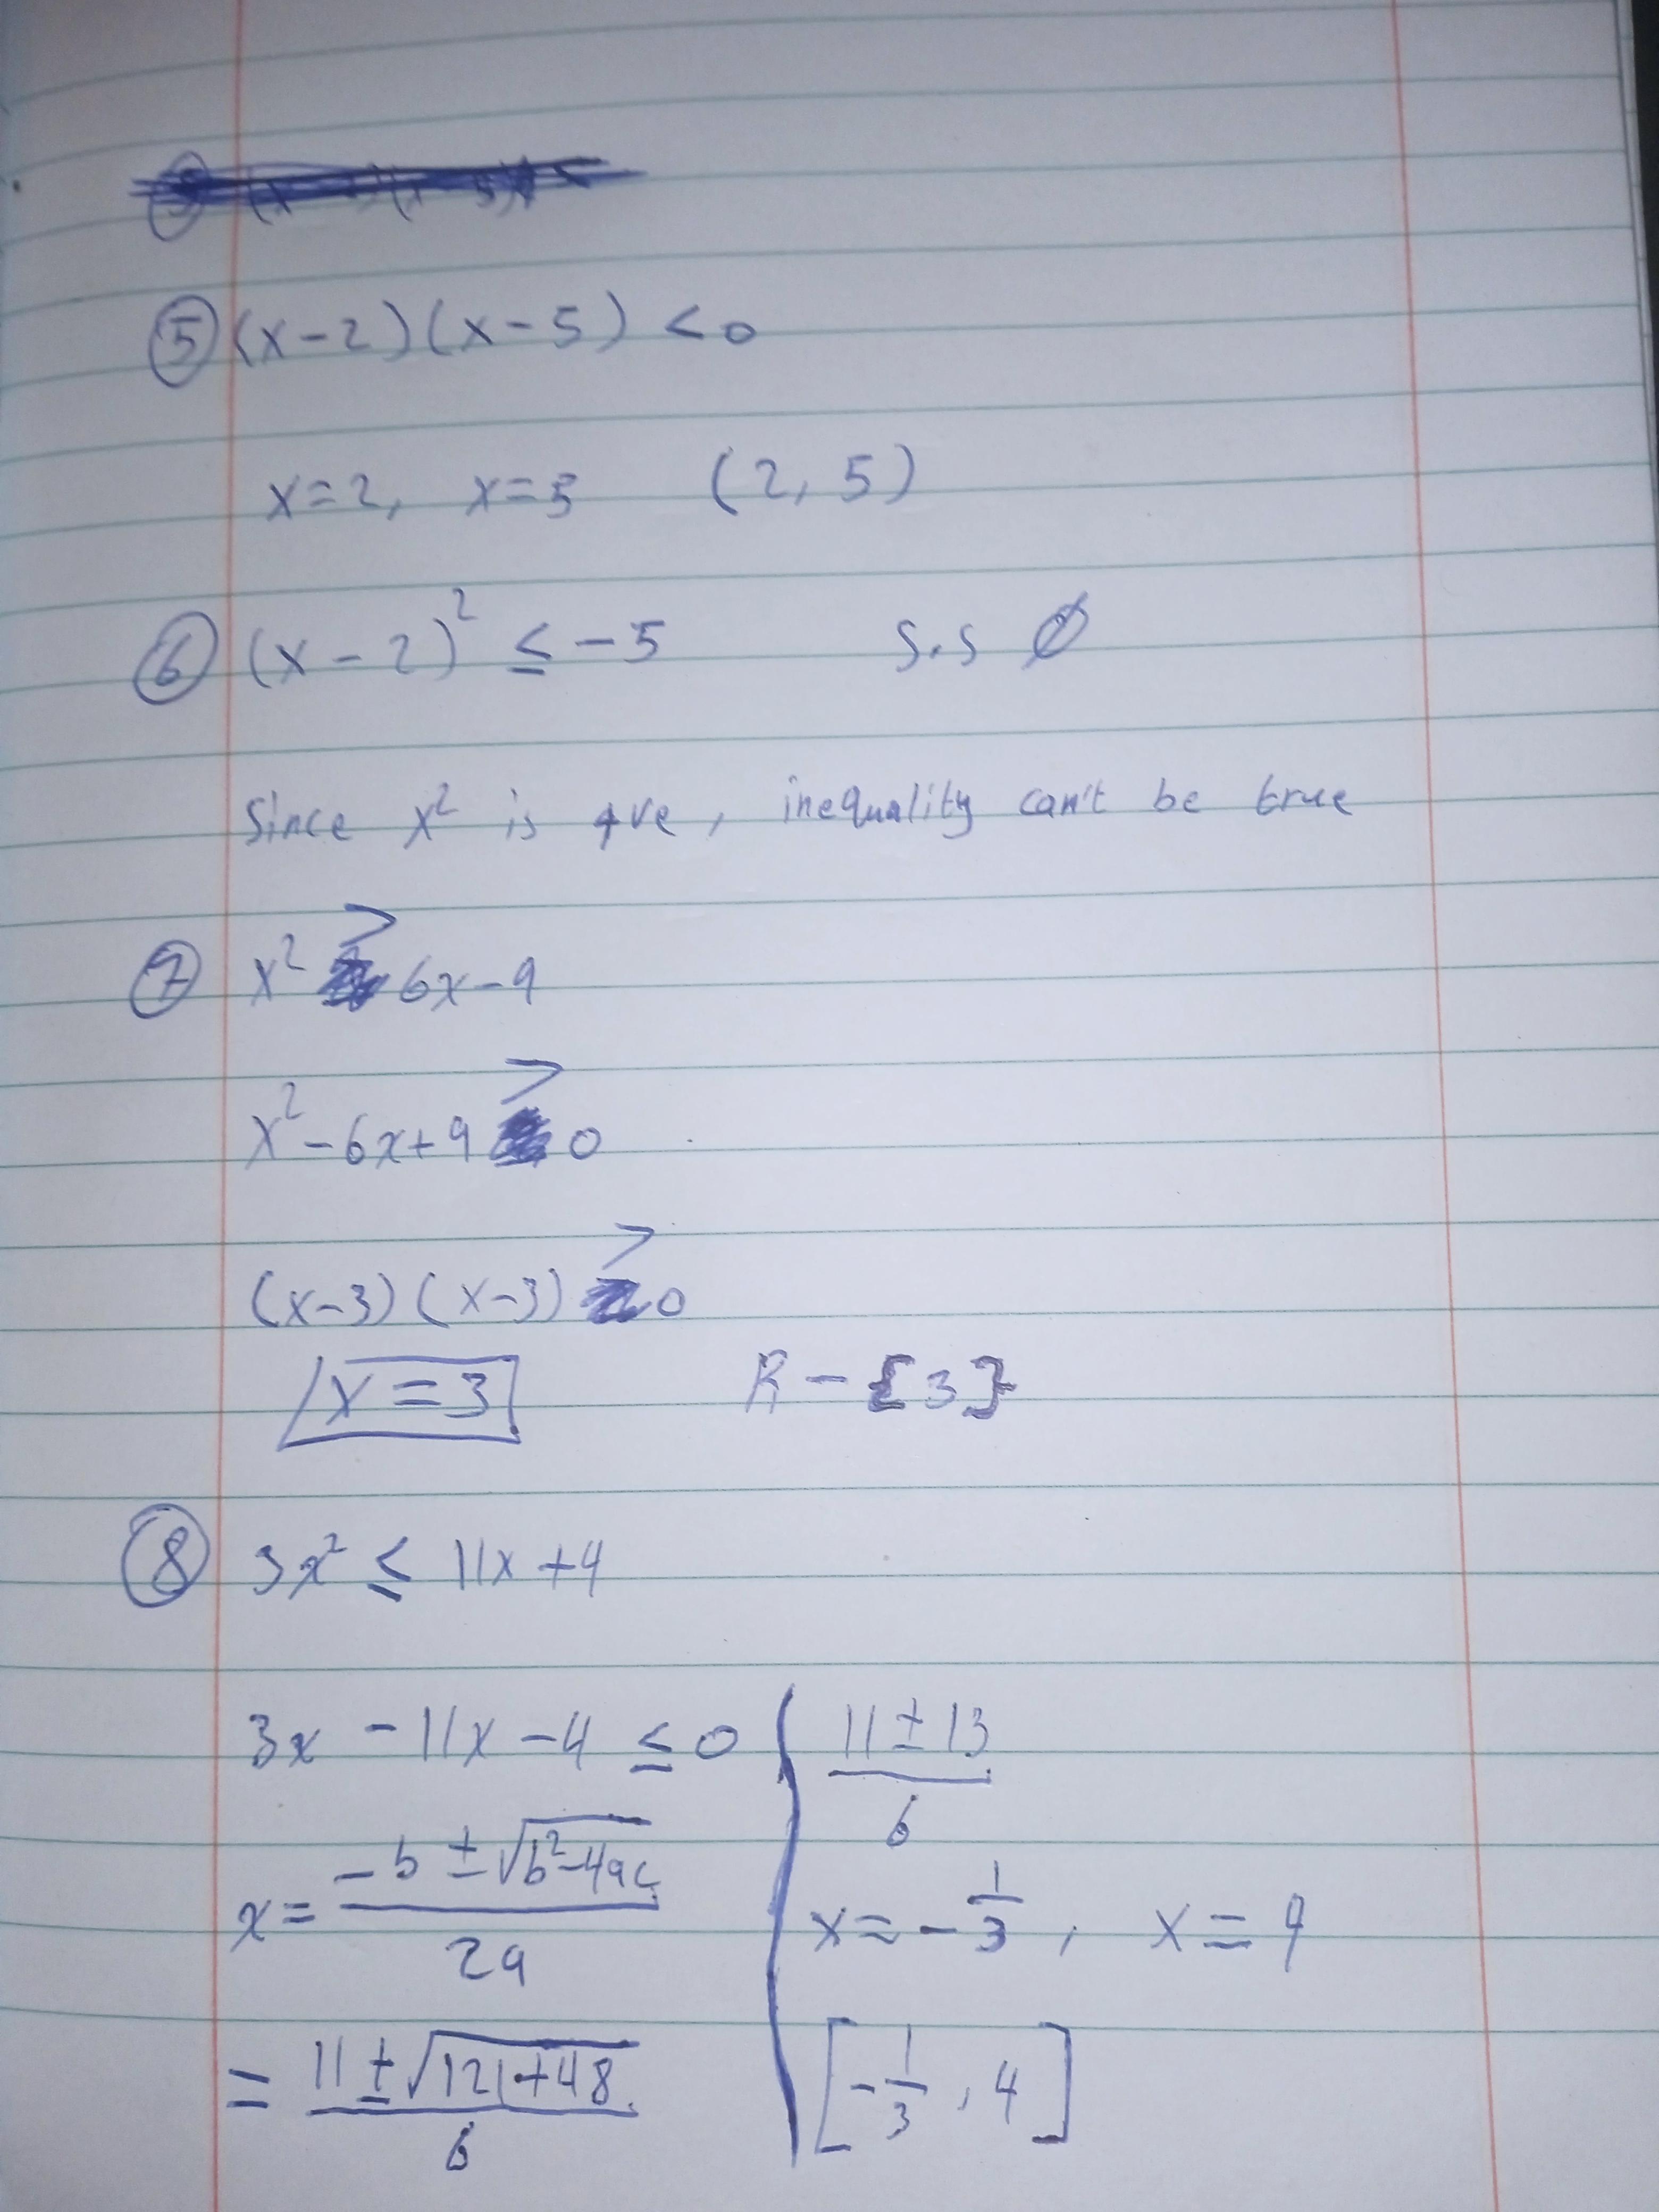 ⑤ (x-2)(x-5) <0
x=2, x=5 (2, 5)
⑥ (x-2)² ≤ -5 S.S ∅
Since x² is +ve, inequality can't be true
⑦ x² > 6x-9
x²-6x+9 > 0
(x-3)(x-3) > 0
x=3 R-{3}
⑧ 3x² ≤ 11x+4
3x -11x-4 ≤0
x= (-b ± √(b²-4ac))/2a
= (11 ± √(121+48))/6
(11±13)/6
x= -1/3, x=4
[-1/3, 4]